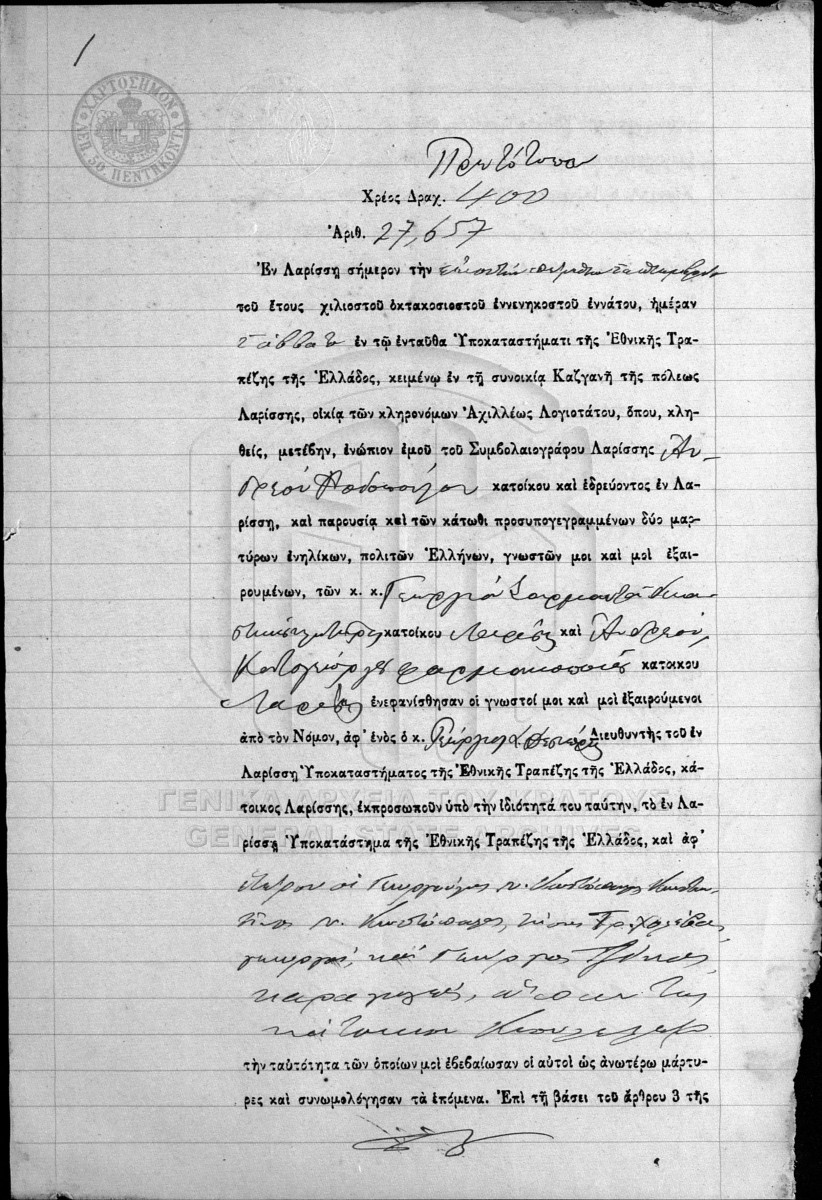 1
ΧΑΡΤΟΣΗΜΟΝ
ΛΕΠ. 50. ΠΕΝΤΗΚΟΝΤΑ
Πρωτότυπον
Χρέος Δραχ. 400
Ἀριθ. 27,657
Ἐν Λαρίσσῃ σήμερον τὴν εἰκοστὴν πέμπτην Σεπτεμβρίου
τοῦ ἔτους χιλιοστοῦ ὀκτακοσιοστοῦ ἐννενηκοστοῦ ἐννάτου, ἡμέραν
Σάββατον ἐν τῷ ἐνταῦθα Ὑποκαταστήματι τῆς Ἐθνικῆς Τρα-
πέζης τῆς Ἑλλάδος, κειμένῳ ἐν τῇ συνοικίᾳ Καζγανῆ τῆς πόλεως
Λαρίσσης, οἰκίᾳ τῶν κληρονόμων Ἀχιλλέως Λογιοτάτου, ὅπου, κλη-
θείς, μετέβην, ἐνώπιον ἐμοῦ τοῦ Συμβολαιογράφου Λαρίσσης Ἀν-
δρέου Ῥοδοπούλου κατοίκου καὶ ἑδρεύοντος ἐν Λα-
ρίσσῃ, καὶ παρουσίᾳ καὶ τῶν κάτωθι προσυπογεγραμμένων δύο μαρ-
τύρων ἐνηλίκων, πολιτῶν Ἑλλήνων, γνωστῶν μοι καὶ μοὶ ἐξαι-
ρουμένων, τῶν κ. κ. Γεωργίου
κατοίκου Λαρίσσης καὶ Ἀνδρέου
Κατσιγεώργη φαρμακοποιοῦ κατοικου
Λαρίσσης ἐνεφανίσθησαν οἱ γνωστοί μοι καὶ μοὶ ἐξαιρούμενοι
ἀπὸ τὸν Νόμον, ἀφ' ἑνὸς ὁ κ. Γεώργιος Διευθυντὴς τοῦ ἐν
Λαρίσσῃ Ὑποκαταστήματος τῆς Ἐθνικῆς Τραπέζης τῆς Ἑλλάδος, κά-
τοικος Λαρίσσης, ἐκπροσωποῦν ὑπὸ τὴν ἰδιότητά του ταύτην, τὸ ἐν Λα-
ρίσσῃ Ὑποκατάστημα τῆς Ἐθνικῆς Τραπέζης τῆς Ἑλλάδος, καὶ ἀφ'
ἑτέρου οἱ Κωσταν-
τῖνος
γεωργοί, καὶ Γεώργιος
κάτοικοι
τὴν ταὐτότητα τῶν ὁποίων μοὶ ἐβεβαίωσαν οἱ αὐτοὶ ὡς ἀνωτέρω μάρτυ-
ρες καὶ συνωμολόγησαν τὰ ἑπόμενα. Ἐπὶ τῇ βάσει τοῦ ἄρθρου 3 τῆς
ΓΕΝΙΚΑ ΑΡΧΕΙΑ ΤΟΥ ΚΡΑΤΟΥΣ
GENERAL STATE ARCHIVES